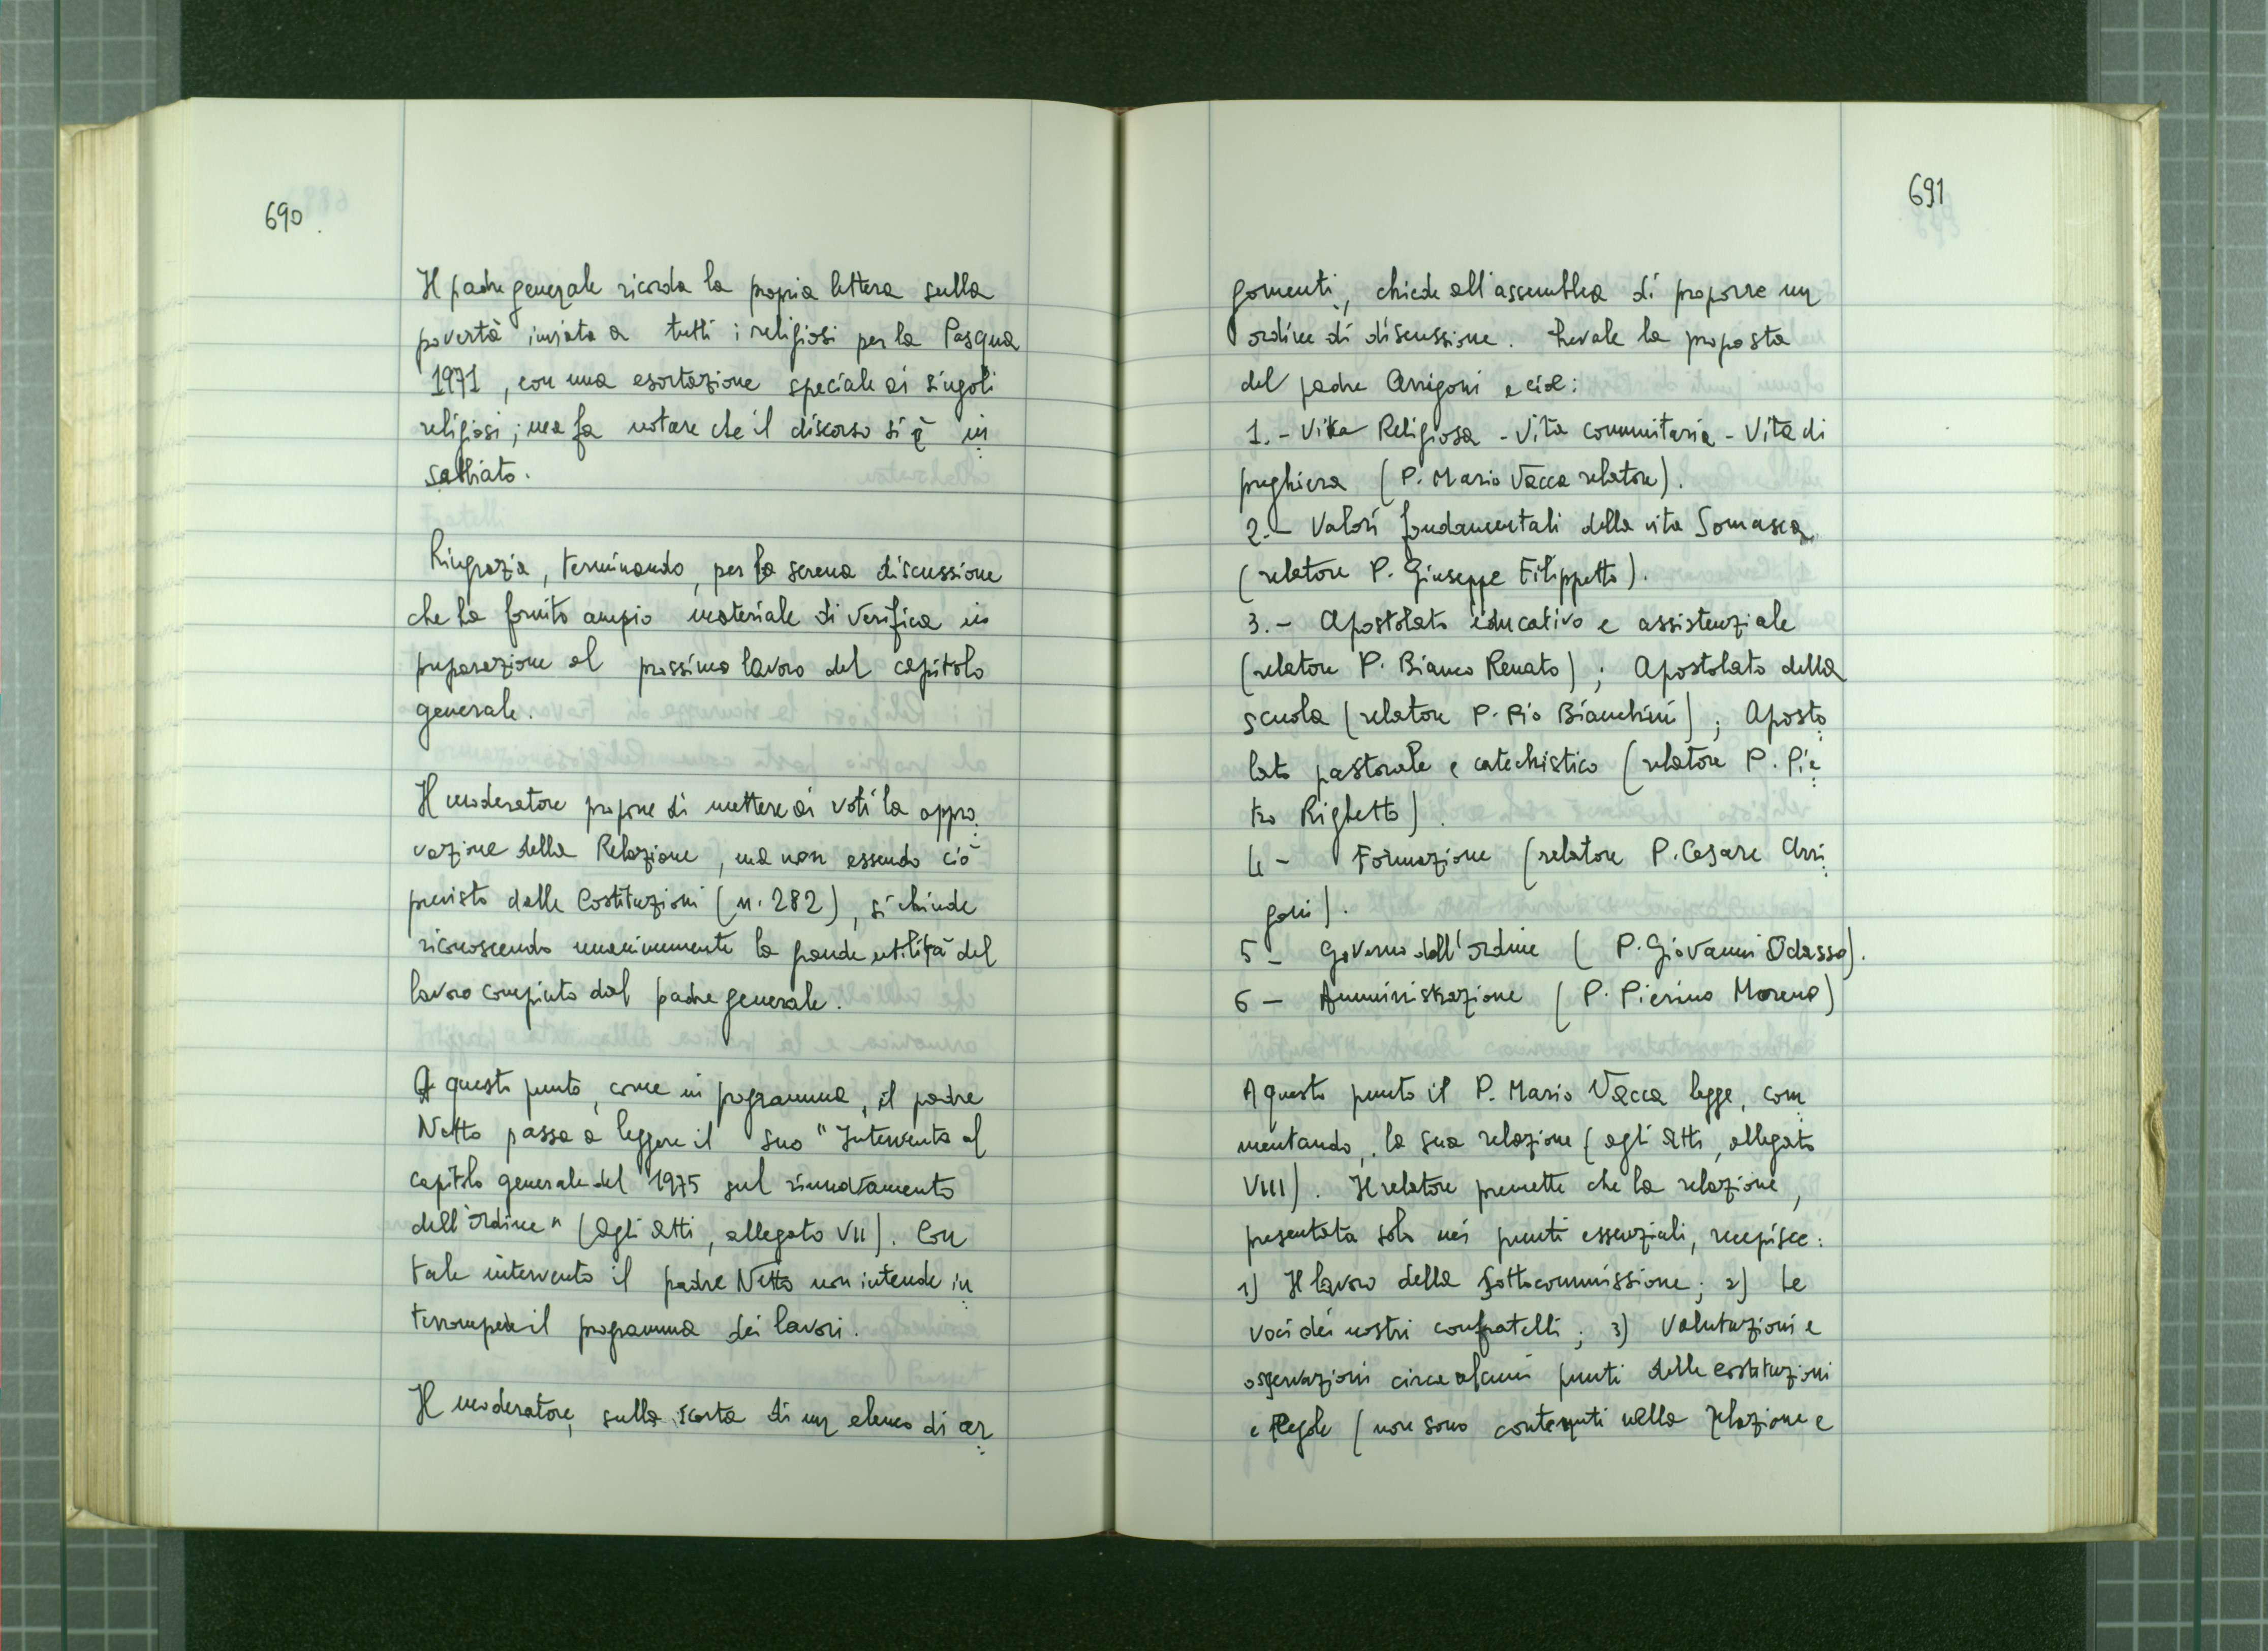 690.
Il padre generale ricorda la propria lettera sulla
povertà inviata a tutti i religiosi per la Pasqua
1971, con una esortazione speciale ai singoli
religiosi; ma fa notare che il discorso si è in
sabbiato.
Ringrazia, terminando, per la serena discussione
che ha fornito ampio materiale di verifica in
preparazione al prossimo lavoro del capitolo
generale.
Il moderatore propone di mettere ai voti la appro
vazione della Relazione, ma non essendo ciò
previsto dalle Costituzioni (n. 282), si chiude
riconoscendo unanimemente la grande utilità del
lavoro compiuto dal padre generale.
A questo punto, come in programma, il padre
Netto passa a leggere il suo "Intervento al
capitolo generale del 1975 sul rinnovamento
dell'ordine" (agli atti, allegato VII). Con
tale intervento il padre Netto non intende in
terrompere il programma dei lavori.
Il moderatore, sulla scorta di un elenco di ar
691
gomenti, chiede all'assemblea di proporre un
ordine di discussione. Prevale la proposta
del padre Arrigoni e cioè:
1.- Vita Religiosa - Vita comunitaria - Vita di
preghiera (P. Mario Vacca relatore).
2.- Valori fondamentali della vita Somasca
(relatore P. Giuseppe Filippetto).
3.- Apostolato educativo e assistenziale
(relatore P. Bianco Renato); Apostolato della
scuola (relatore P. Pio Bianchini); Aposto
lato pastorale e catechistico (relatore P. Pie
tro Righetto).
4 - Formazione (relatore P. Cesare Arri
goni).
5 - Governo dell'ordine (P. Giovanni Odasso).
6 - Amministrazione (P. Pierino Moreno)
A questo punto il P. Mario Vacca legge, com
mentando, la sua relazione (agli atti, allegato
VIII). Il relatore premette che la relazione,
presentata solo nei punti essenziali, recepisce:
1) Il lavoro della sottocommissione; 2) Le
voci dei nostri confratelli; 3) Valutazioni e
osservazioni circa alcuni punti delle costituzioni
e Regole (non sono contenuti nella relazione e